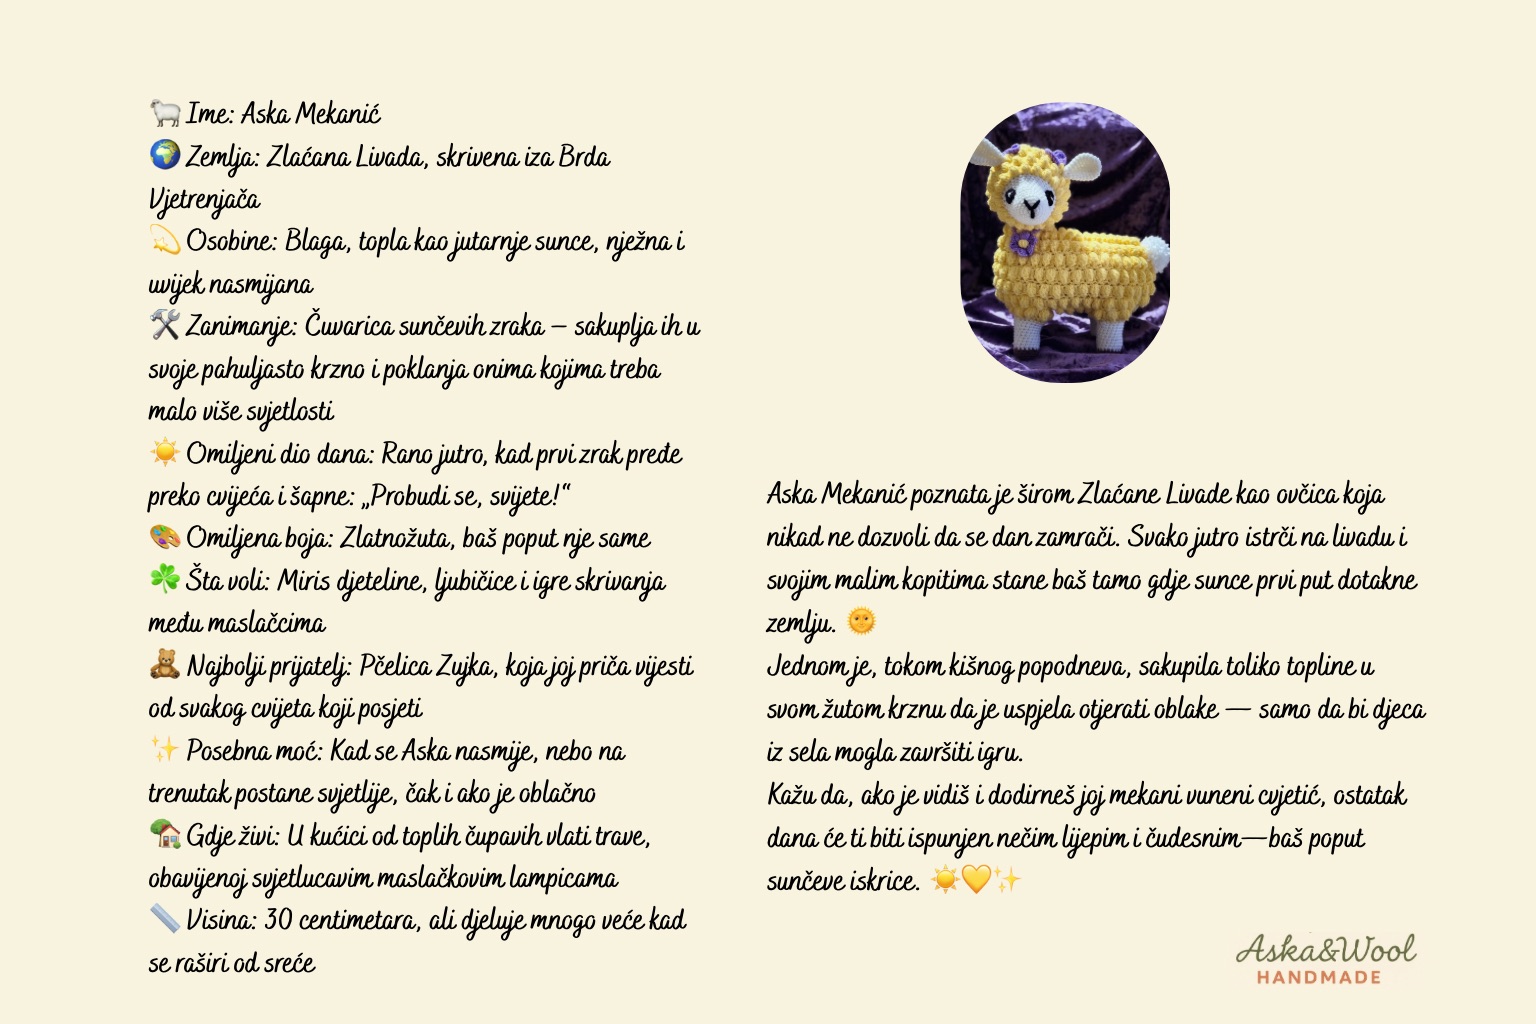 🐑 Ime: Aska Mekanić
🌍 Zemlja: Zlaćana Livada, skrivena iza Brda
Vjetrenjača
💫 Osobine: Blaga, topla kao jutarnje sunce, nježna i
uvijek nasmijana
🛠️ Zanimanje: Čuvarica sunčevih zraka – sakuplja ih u
svoje pahuljasto krzno i poklanja onima kojima treba
malo više svjetlosti
☀️ Omiljeni dio dana: Rano jutro, kad prvi zrak pređe
preko cvijeća i šapne: „Probudi se, svijete!“
🎨 Omiljena boja: Zlatnožuta, baš poput nje same
☘️ Šta voli: Miris djeteline, ljubičice i igre skrivanja
među maslačcima
🧸 Najbolji prijatelj: Pčelica Zujka, koja joj priča vijesti
od svakog cvijeta koji posjeti
✨ Posebna moć: Kad se Aska nasmije, nebo na
trenutak postane svjetlije, čak i ako je oblačno
🏡 Gdje živi: U kućici od toplih čupavih vlati trave,
obavijenoj svjetlucavim maslačkovim lampicama
📏 Visina: 30 centimetara, ali djeluje mnogo veće kad
se raširi od sreće
Aska Mekanić poznata je širom Zlaćane Livade kao ovčica koja
nikad ne dozvoli da se dan zamrači. Svako jutro istrči na livadu i
svojim malim kopitima stane baš tamo gdje sunce prvi put dotakne
zemlju. 🌞
Jednom je, tokom kišnog popodneva, sakupila toliko topline u
svom žutom krznu da je uspjela otjerati oblake — samo da bi djeca
iz sela mogla završiti igru.
Kažu da, ako je vidiš i dodirneš joj mekani vuneni cvjetić, ostatak
dana će ti biti ispunjen nečim lijepim i čudesnim—baš poput
sunčeve iskrice. ☀️💛✨
Aska&Wool
HANDMADE